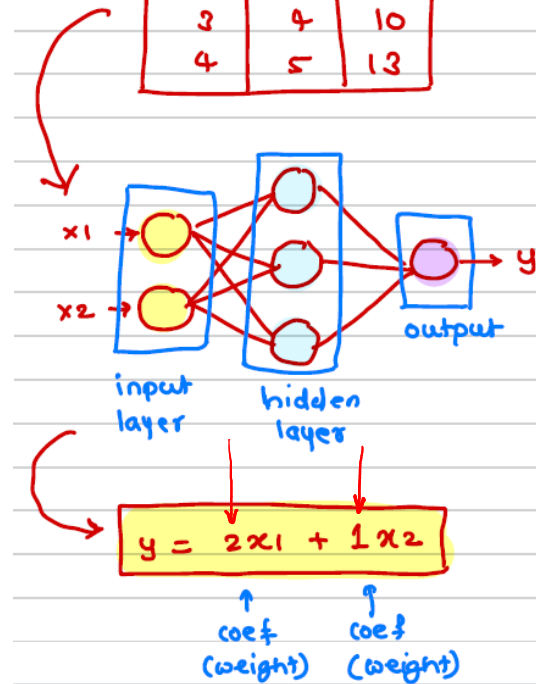 3 4 10
4 5 13
x1
x2
y
output
input
layer
hidden
layer
y = 2x1 + 1x2
coef
(weight)
coef
(weight)